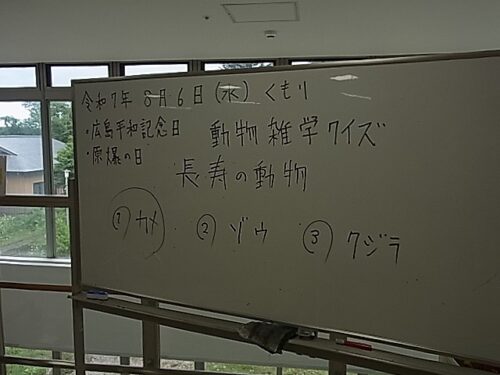 令和7年 8月6日(水)くもり
・広島平和記念日
・原爆の日
動物雑学クイズ
長寿の動物
① カメ ② ゾウ ③ クジラ